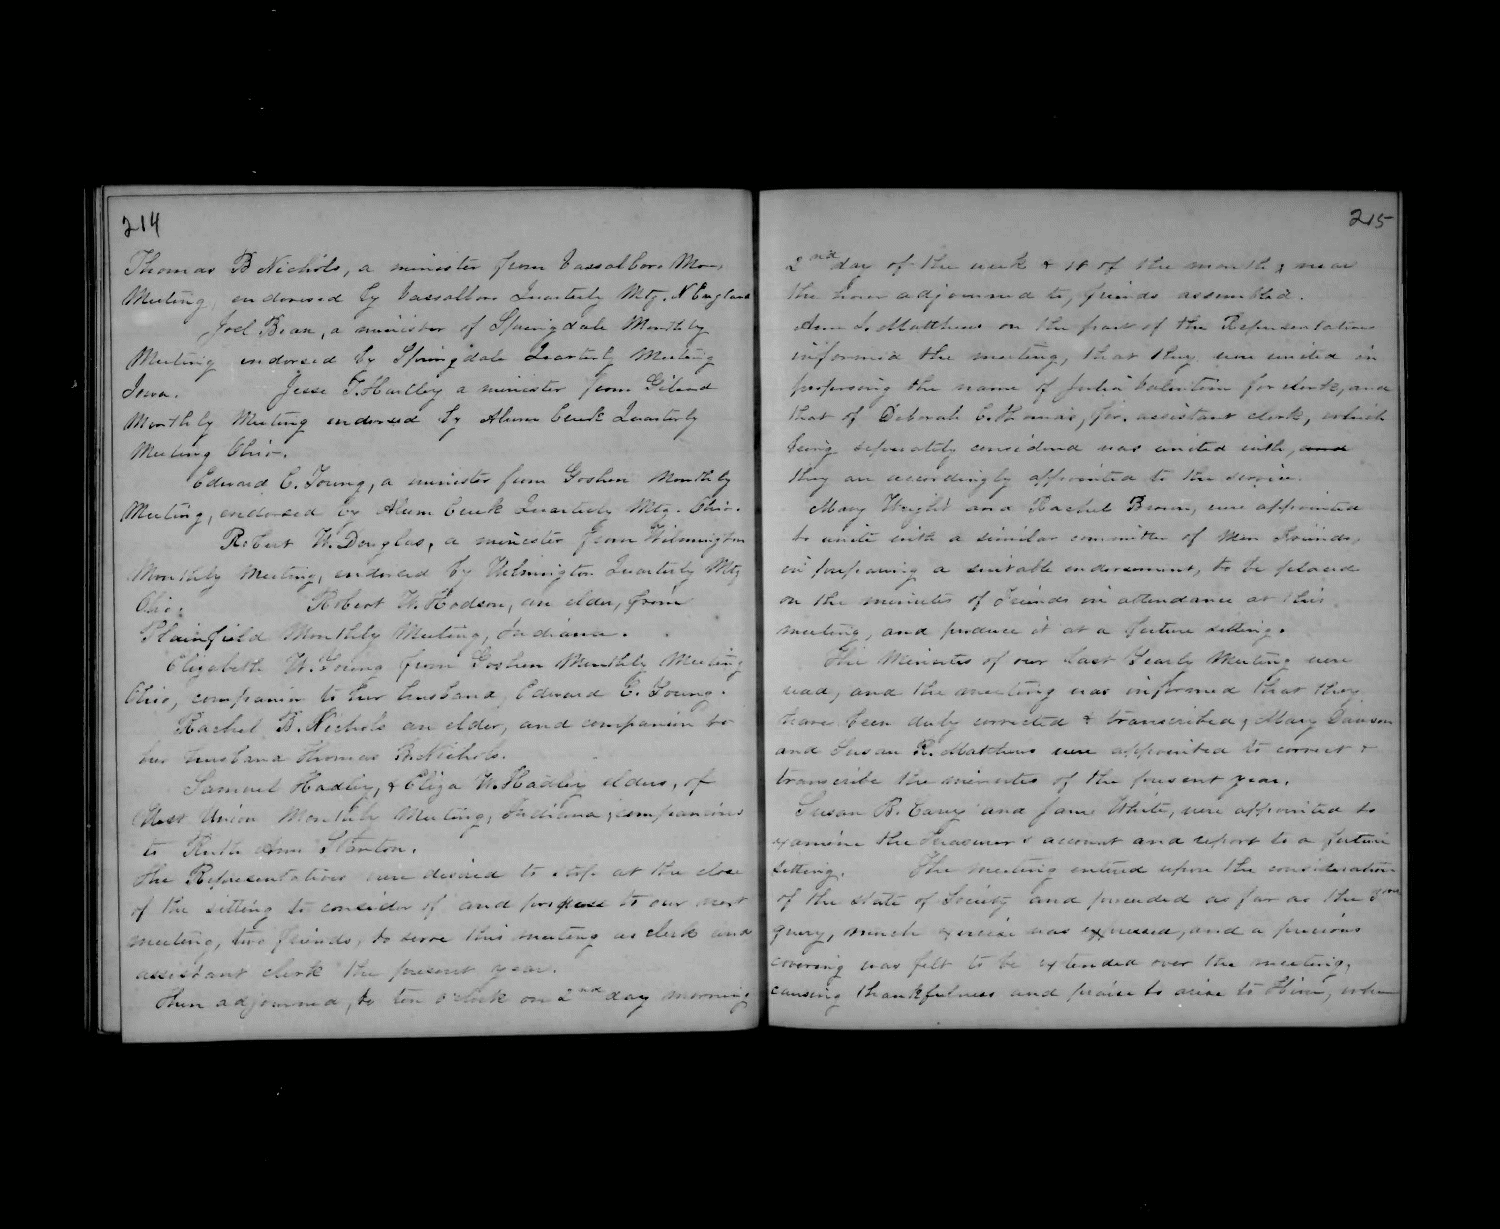 214
Thomas B Nichols, a minister from Vassalboro Mon,
Meeting, endorsed by Vassalboro Quarterly Mtg. N England
Joel Bean, a minister of Springdale Monthly
Meeting endorsed by Springdale Quarterly Meeting
Iowa. Jesse T. Hartley a minister from Gilead
Monthly Meeting endorsed by Alum Creek Quarterly
Meeting Ohio.
Edward C. Young, a minister from Goshen Monthly
Meeting, endorsed by Alum Creek Quarterly Mtg. Ohio.
Robert W. Douglas, a minister from Wilmington
Monthly Meeting, endorsed by Wilmington Quarterly Mtg
Ohio. Robert W. Hodson, an elder, from
Plainfield Monthly Meeting, Indiana.
Elizabeth W. Young from Goshen Monthly Meeting
Ohio, companion to her husband, Edward C. Young.
Rachel B. Nichols an elder, and companion to
her husband Thomas B. Nichols.
Samuel Hadley, & Eliza W. Hadley elders, of
West Union Monthly Meeting, Indiana, companions
to Ruth Ann Stanton.
The Representatives were desired to stop at the close
of the sitting to consider of and propose to our next
meeting, two friends, to serve this meeting as clerk and
assistant clerk the present year.
Then adjourned, to ten o'clock on 2nd day morning
215
2nd day of the week & of the month, near
the hour adjourned to, friends assembled.
Ann L. Matthews on the part of the Representatives
informed the meeting, that they were united in
proposing the name of Julia Valentine for clerk, and
that of Deborah C. Thomas, for assistant clerk, which
being separately considered was united with, and
they are accordingly appointed to the service.
Mary Wright and Rachel Brown, were appointed
to unite with a similar committee of Men Friends,
in preparing a suitable endorsement, to be placed
on the minutes of Friends in attendance at this
meeting, and produce it at a future sitting.
The Minutes of our last Yearly Meeting were
read, and the meeting was informed that they
have been duly corrected & transcribed, Mary Dawson
and Susan R. Matthews were appointed to correct &
transcribe the minutes of the present year.
Susan B. Carey and Jane White, were appointed to
examine the Treasurer's account and report to a future
sitting. The meeting entered upon the consideration
of the state of Society and proceeded as far as the
query, much exercise was expressed, and a precious
covering was felt to be extended over the meeting,
causing thankfulness and praise to arise to Him, whom